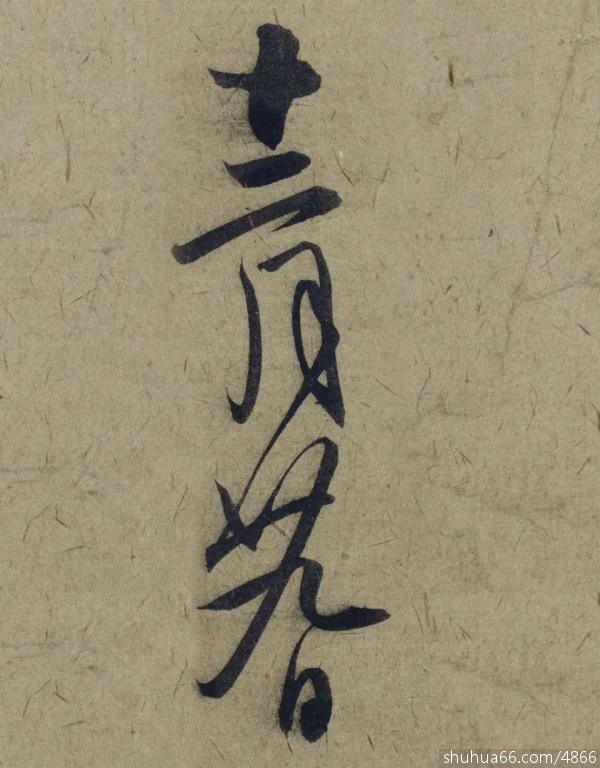 十二月廿九日
shuhua66.com/4866